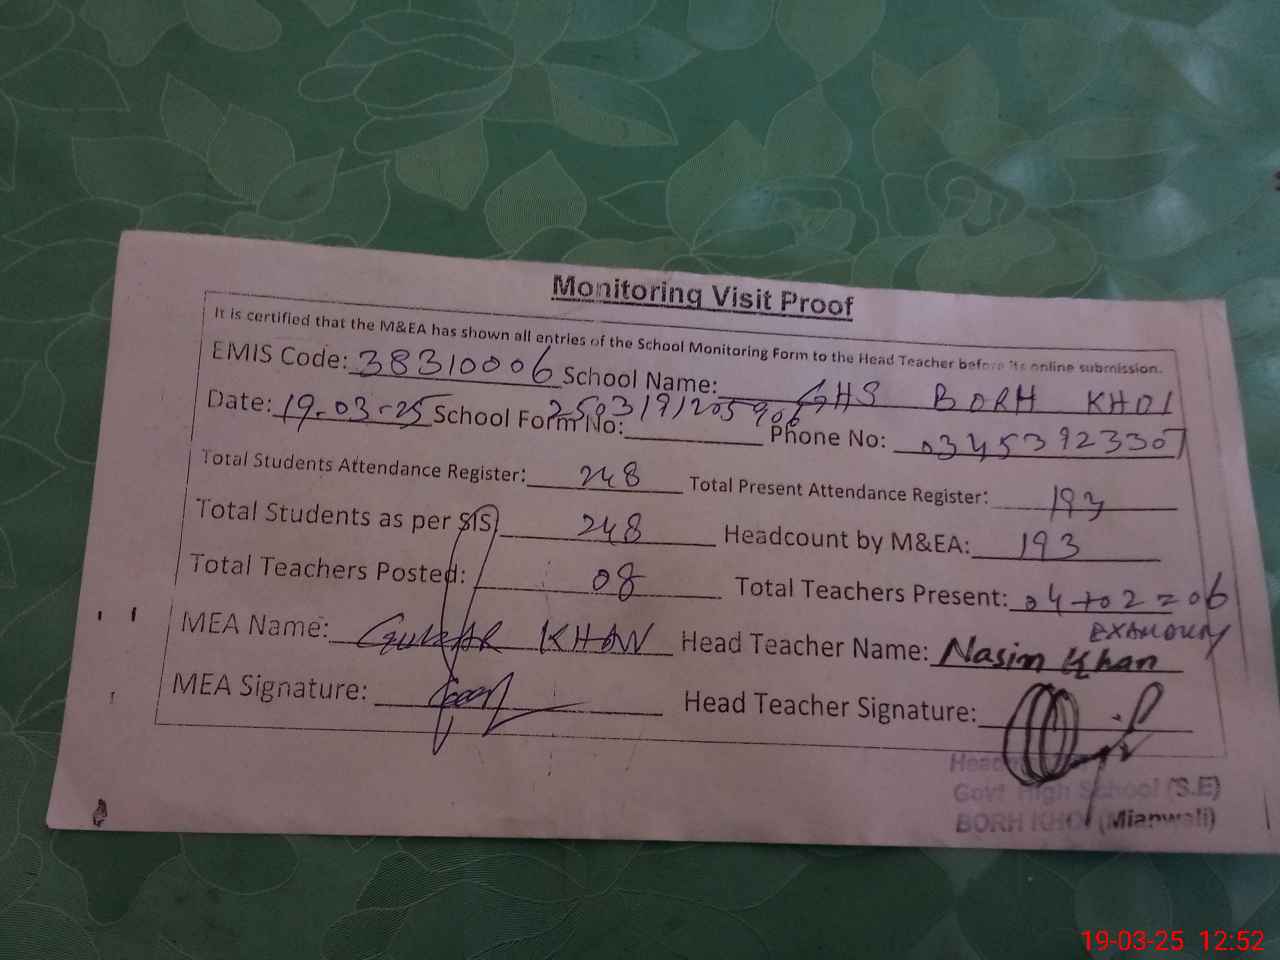 Monitoring Visit Proof
It is certified that the M&EA has shown all entries of the School Monitoring Form to the Head Teacher before its online submission.
EMIS Code: 38310006 School Name: GHS BORH KHOI
Date: 19-03-25 School Form No: 250319120590 Phone No: 03453923307
Total Students Attendance Register: 248 Total Present Attendance Register: 193
Total Students as per SIS 248 Headcount by M&EA: 193
Total Teachers Posted: 08 Total Teachers Present: 04+02=06
MEA Name: KHAN Head Teacher Name: Nasim Khan
MEA Signature: Head Teacher Signature:
Govt High School (S.E)
BORH KHOI (Mianwali)
19-03-25 12:52